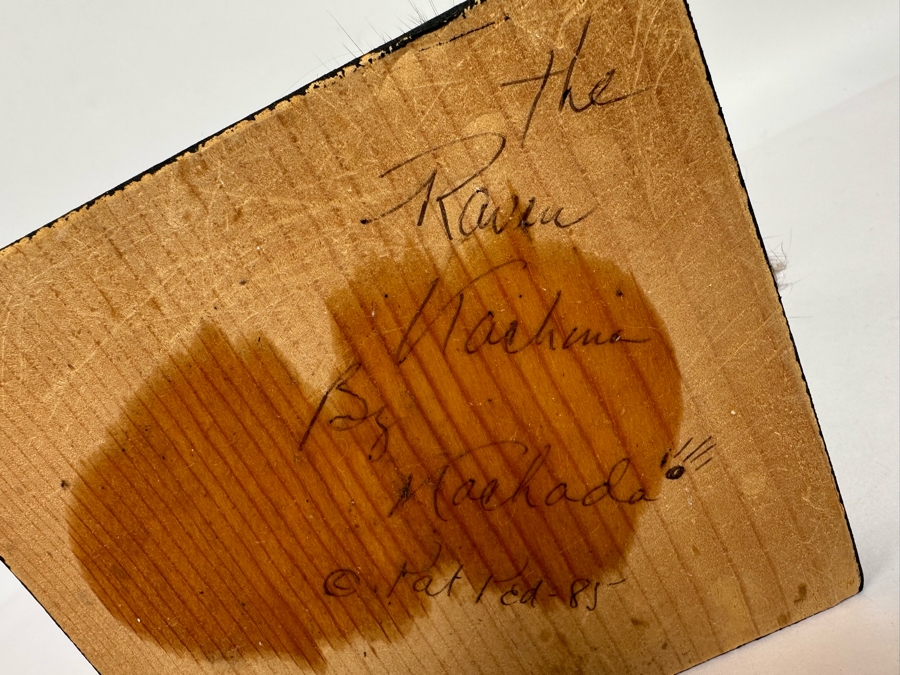 the
Raven
Kachina
By
Machado
© Pat Ped-85